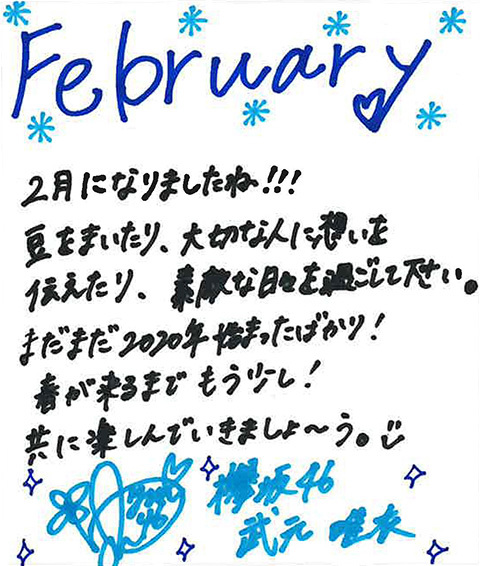 February
2月になりましたね!!!
豆をまいたり、大切な人に想いを
伝えたり、素敵な日々を過ごして下さい。
まだまだ2020年始まったばかり!
春が来るまでもう少し!
共に楽しんでいきましょ〜う。
欅坂46
武元 唯衣